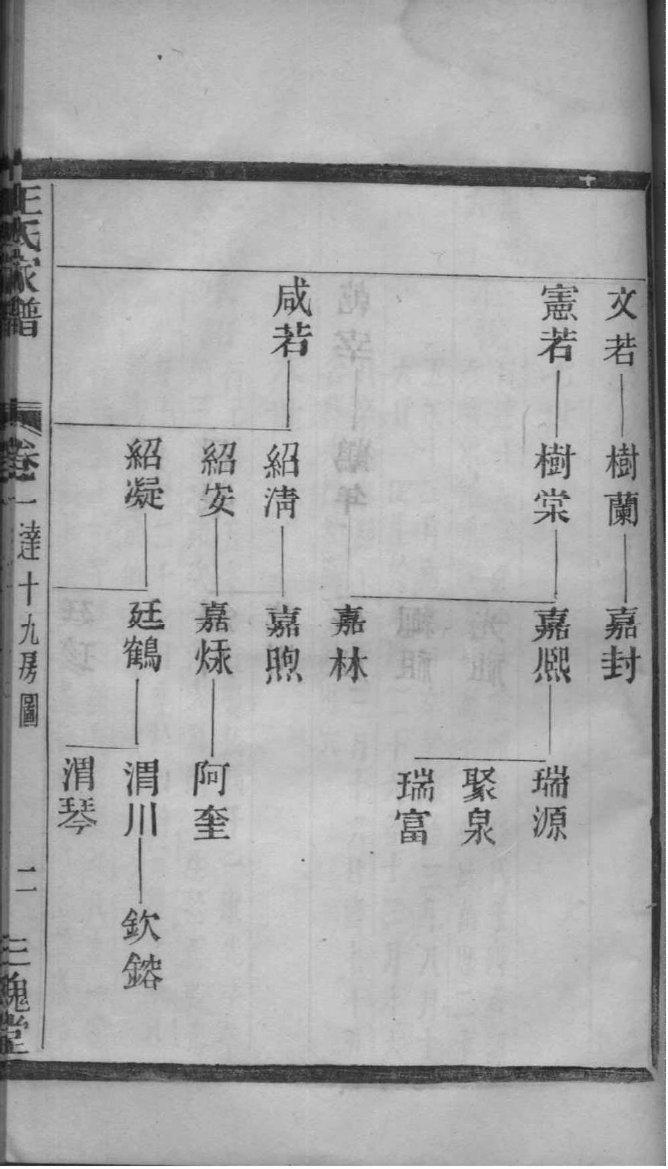 文若 樹蘭 嘉封
憲若 樹棠 嘉熙 瑞源
聚泉
瑞富
嘉林
咸若 紹淸 嘉煦
紹安 嘉烁 阿奎
紹凝 廷鶴 渭川 欽鎔
渭琴
王氏家譜 卷一 達十九房圖 二 三槐堂